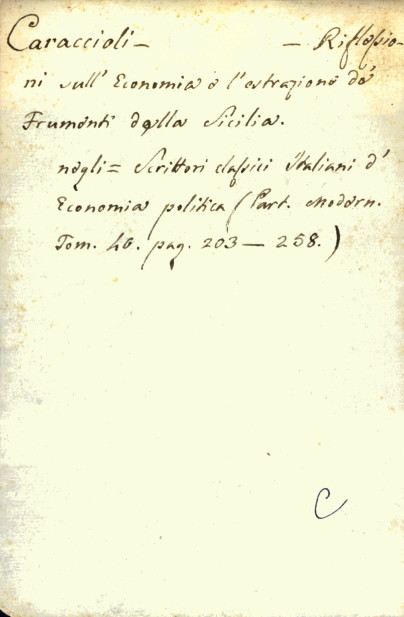 Caraccioli — — Riflessio-
ni sull' Economia e l'estrazione de'
Frumenti della Sicilia.
negli = Scrittori classici Italiani d'
Economia politica (Part. Modern.
Tom. 40. pag. 203 — 258.)
C